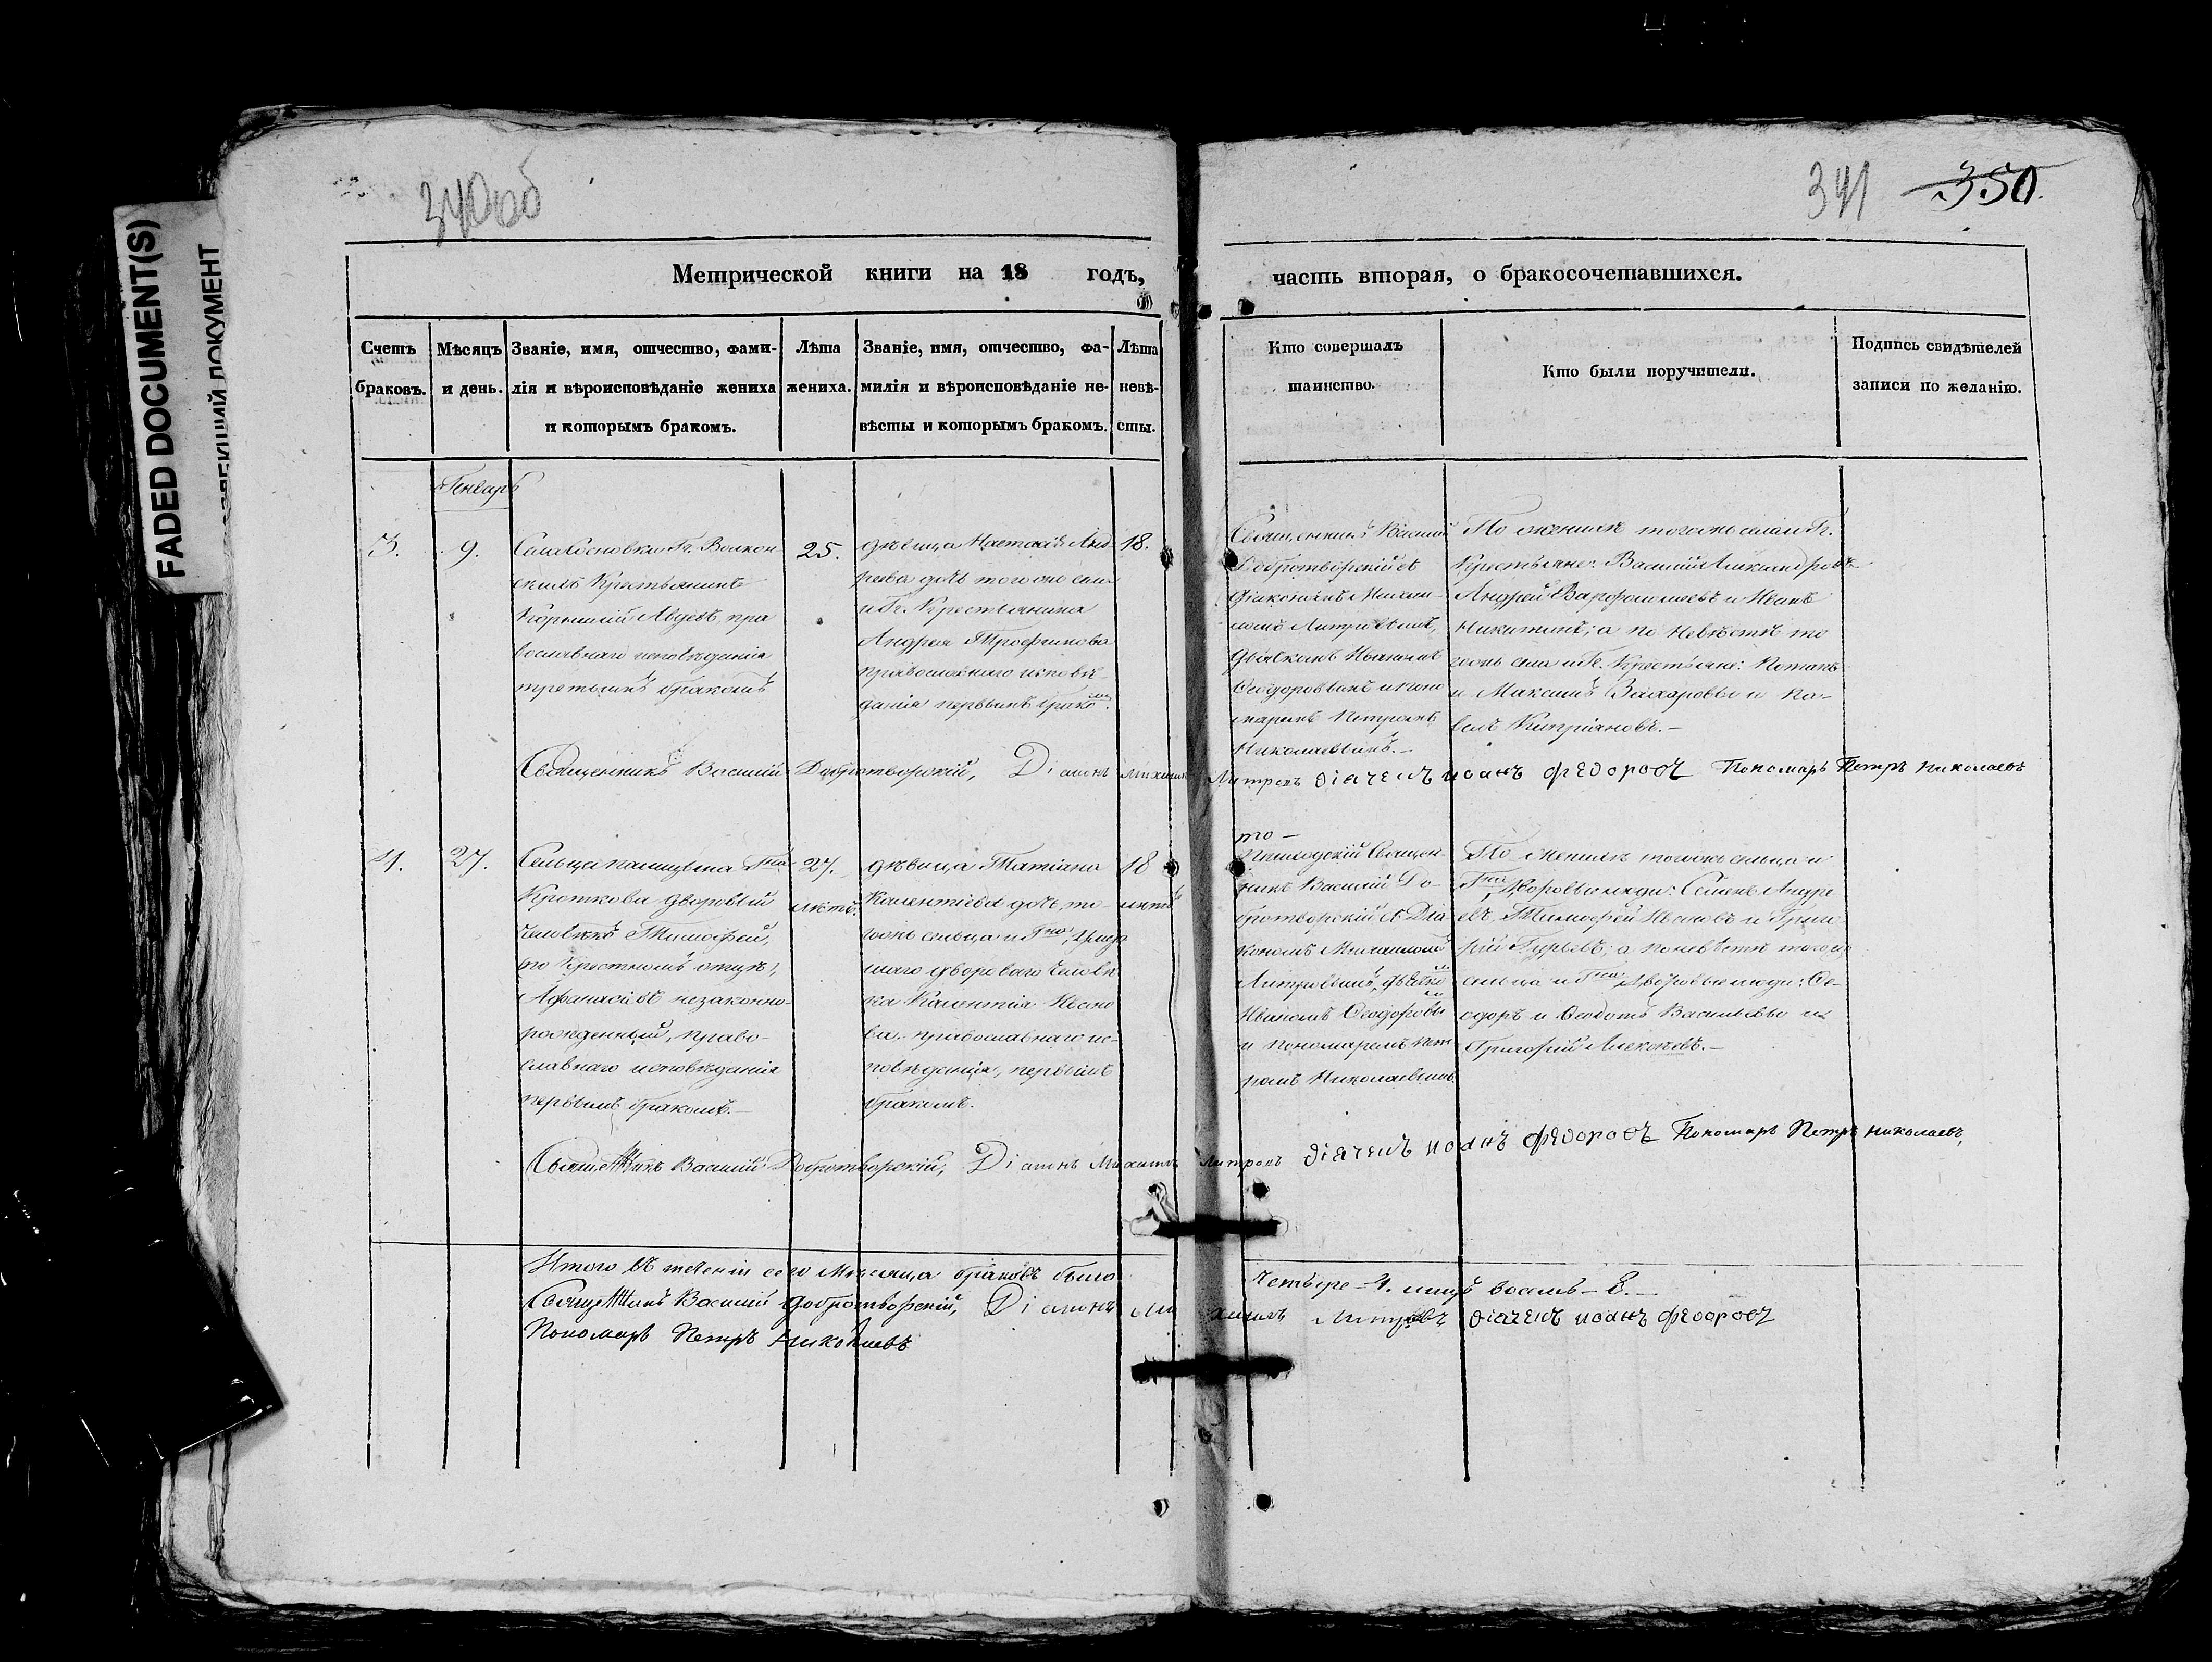 FADED DOCUMENT(S)
ДОКУМЕНТ
340об
341 350.
Метрической книги на 18 годъ,
часть вторая, о бракосочетавшихся.
Счетъ браковъ.
Мѣсяцъ и день.
Званіе, имя, отчество, фами-
лія и вѣроисповѣданіе жениха
и которымъ бракомъ.
Лѣта жениха.
Званіе, имя, отчество, фа-
милія и вѣроисповѣданіе не-
вѣсты и которымъ бракомъ.
Лѣта невѣ-
сты.
Кто совершалъ
таинство.
Кто были поручители.
Подпись свидѣтелей
записи по желанію.
Генварь
3.
9.
Села Сосновки Гг. Волкон
скихъ Крестьянинъ
Авдѣевъ, пра
вославнаго исповѣданія
третьимъ бракомъ
25.
дѣвица Настасія Анд
реева дочь того же села
и Гг. Крестьянина
Андрея Трофимова
православнаго исповѣ-
данія первымъ бракомъ.
18.
Священникъ Василій
Добротворскій съ
Діакономъ Михаи-
ломъ Митровымъ,
Дьячкомъ Иваномъ
Ѳеодоровымъ и поно
маремъ Петромъ
Николаевымъ.-
По женихѣ того жъ села и Гг.
Крестьяне: Василій Александровъ
Андрей Варфоломеевъ и Иванъ
Никитинъ; а по Невѣстѣ то
гожъ села и Гг. Крестьяне: Потапъ
и Максимъ Захаровы и Па-
велъ Кипріяновъ.-
Священникъ Василій Добротворскій, Діаконъ Михаилъ Митровъ діячекъ иоанъ федоровъ Пономарь Петръ Николаевъ
4.
27.
Сельца Г-на
Кроткова дворовый
человѣкъ Тимофей,
по Крестномъ отцѣ,
Афанасіевъ незаконно-
рожденный, право-
славнаго исповѣданія
первымъ бракомъ.-
27.
лѣтъ.
дѣвица Татіана
Калентіева дочь то-
гожъ сельца и Г-на умер
шаго двороваго человѣ
ка Калентія Ивано
ва, православнаго ис-
повѣданія, первымъ
бракомъ.
18
лѣтъ
то-
Приходскій Священ-
никъ Василій До-
бротворскій съ Діа
кономъ Михаиломъ
Митровымъ, дьячкомъ
Иваномъ Ѳеодоровым
и пономаремъ Пет
ромъ Николаевымъ
По женихѣ тогожъ сельца и
Г-на Дворовые люди: Семенъ Андре
евъ, Тимофей Ивановъ и Григо
рій Гурьевъ; а по невѣстѣ тогожъ
сельца и Г-на Дворовые люди: Ѳе-
одоръ и Ѳедотъ Васильевы и
Григорій Алексѣевъ.-
Священникъ Василій Добротворскій, Діаконъ Михаилъ Митровъ діячекъ иоанъ федоровъ Пономарь Петръ Николаевъ,
Итого въ теченіи сего мѣсяца браковъ было четыре - 4. лицъ восемь - 8.-
Священникъ Василій Добротворскій, Діаконъ Михаилъ Митровъ діячекъ иоанъ федоровъ
Пономарь Петръ Николаевъ